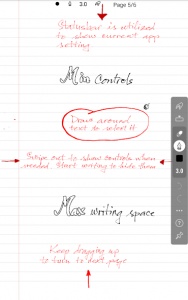 3.0
Page 5/5
Statusbar is utilized
to show current app
setting
Min Controls
Draw around
text to select it
Swipe out to show controls when
needed. Start writing to hide them
3.0
Max writing space
Keep dragging up
to turn to next page